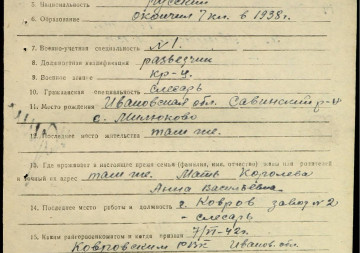 5. Национальность русский
6. Образование окончил 7 кл. в 1938г.
7. Военно-учетная специальность №1.
8. Должностная квалификация разведчик
9. Военное звание кр-ц.
10. Гражданская специальность слесарь
11. Место рождения Ивановская обл. Савинский р-н
с. Милюково
12. Последнее место жительства там же.
13. Где проживает в настоящее время семья (фамилия, имя, отчество) жены или родителей
и точный их адрес там же. Мать Королева
Анна Васильевна
14. Последнее место работы и должность г. Ковров завод №2 -
слесарь
15. Каким райвоенкоматом и когда призван 7/VI-42г.
Ковровским РВК Иванов. обл.